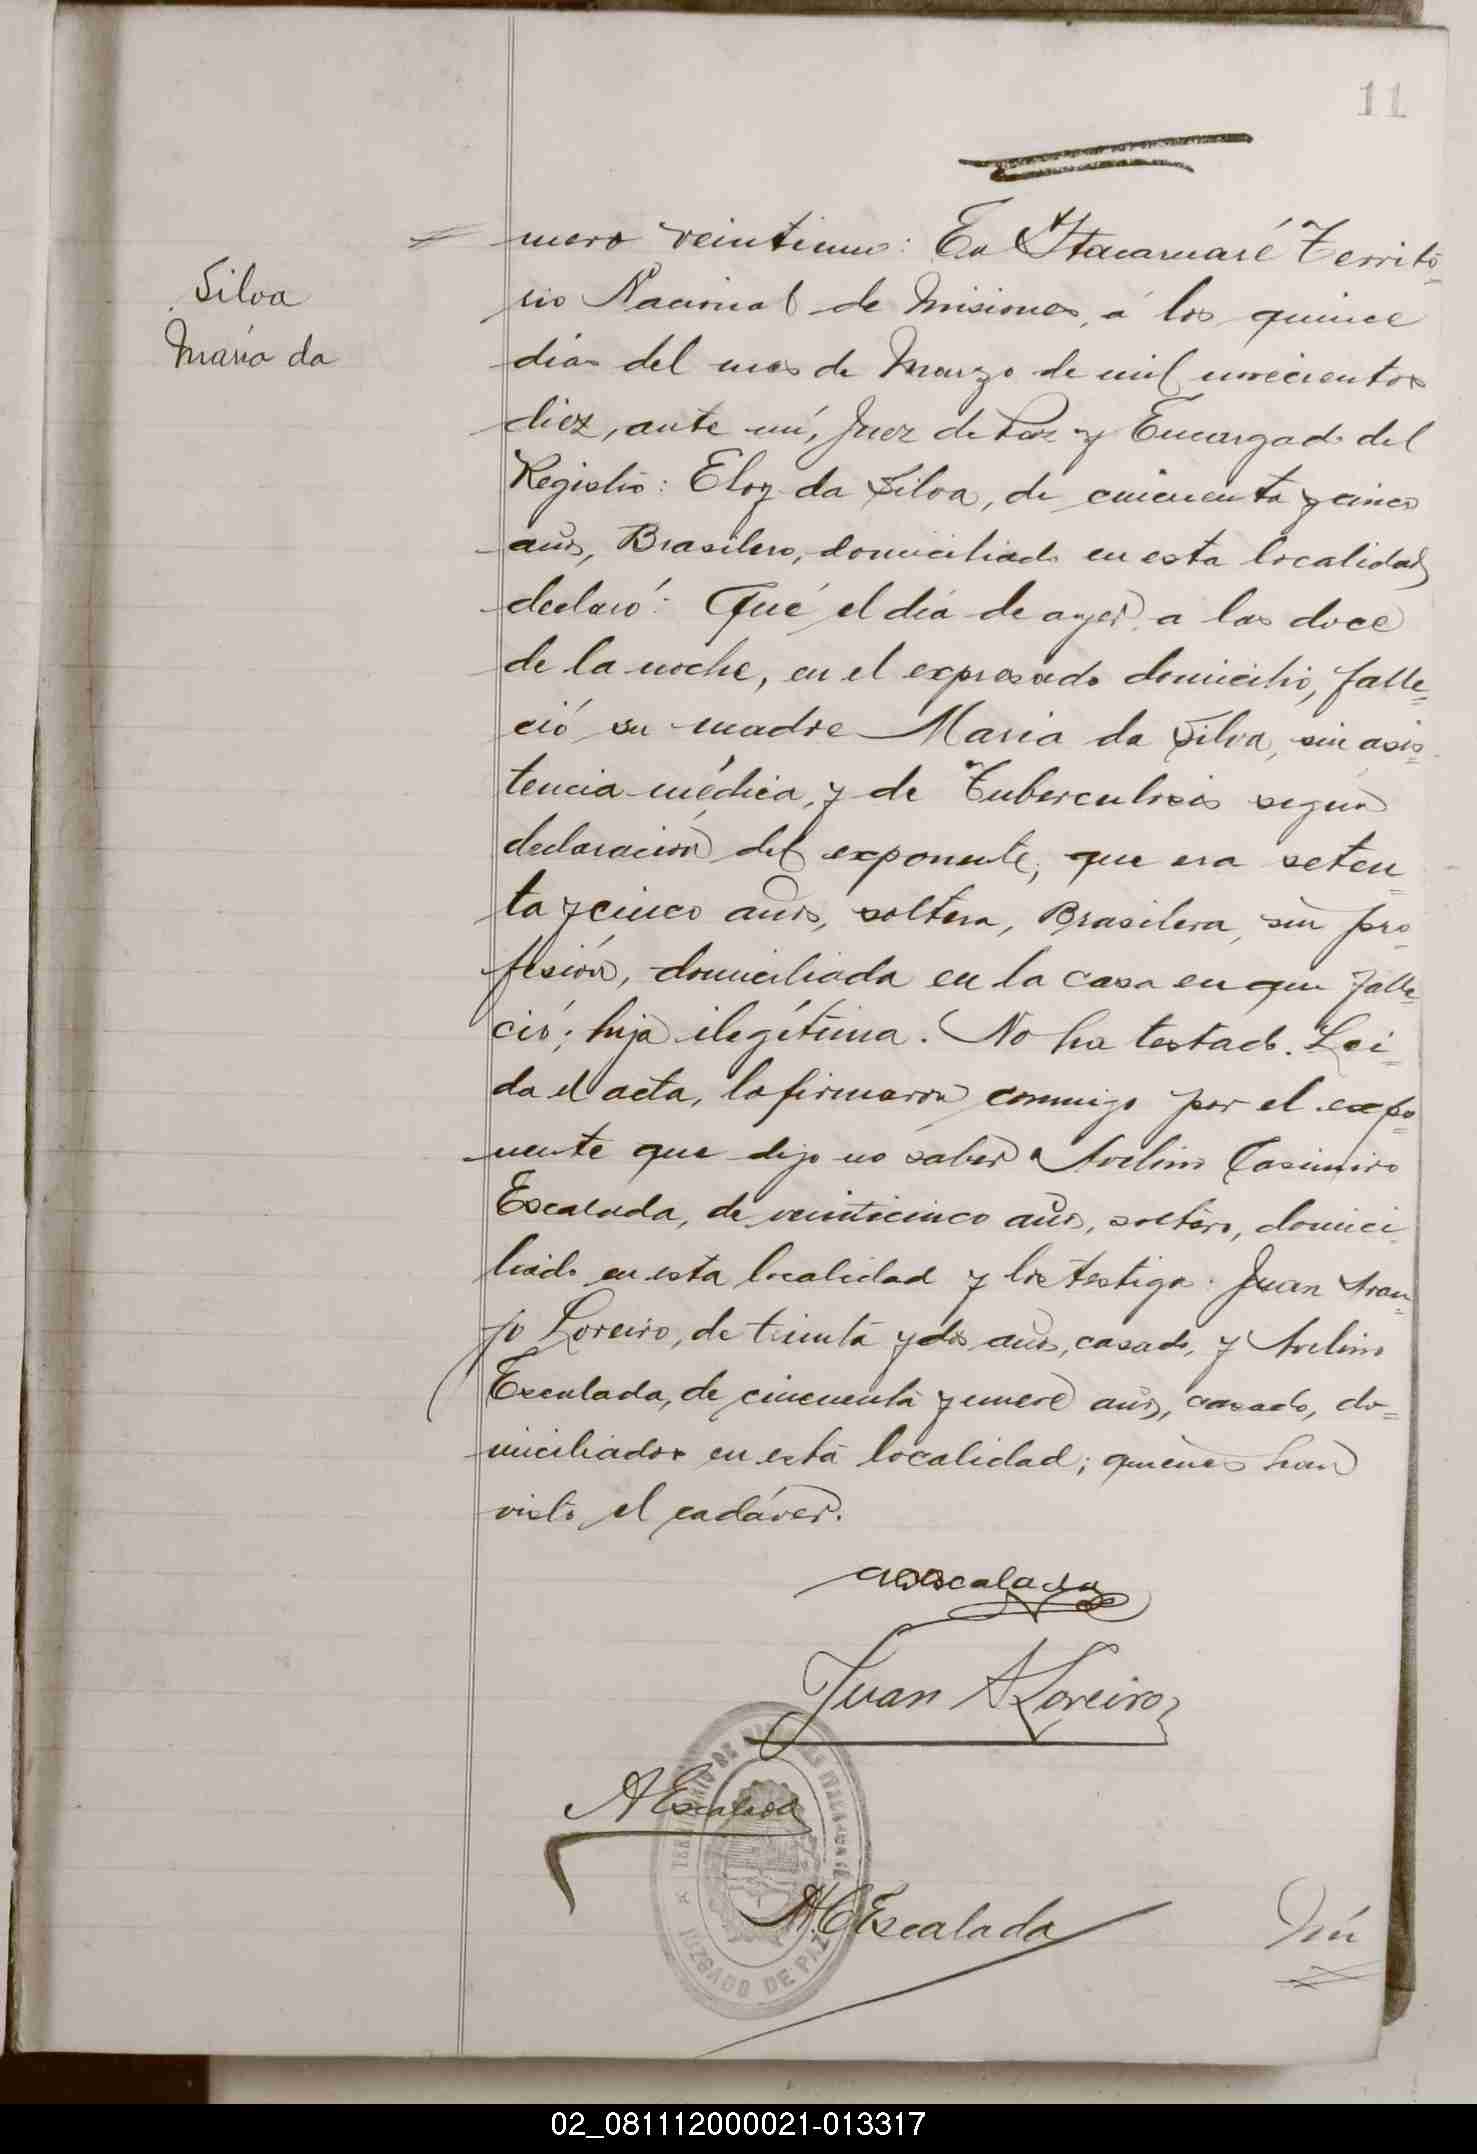 11
Silva
María da
mero veintiuno: En Itacaruaré Territo=
rio Nacional de Misiones, á los quince
dias del mes de Marzo de mil novecientos
diez, ante mí, Juez de Paz y Encargado del
Registro: Eloy da Silva, de cincuenta y cinco
años, Brasilero, domiciliado en esta localidad
declaró: Qué el día de ayer a las doce
de la noche, en el expresado domicilio, falle=
ció su madre Maria da Silva, sin asis=
tencia médica, y de Tuberculosis según
declaración del exponente, que era seten=
ta y cinco años, soltera, Brasilera, sin pro=
fesión, domiciliada en la casa en que falle=
ció; hija ilegítima. No ha testado. Lei=
da el acta, la firmaron conmigo por el expo=
nente que dijo no saber Avelino Casimiro
Escalada, de veinticinco años, soltero, domici=
liado en esta localidad y los testigos: Juan Arau=
jo Loreiro, de treinta y dos años, casado, y Avelino
Escalada, de cincuenta y nueve años, casado, do=
miciliados en esta localidad; quienes han
visto el cadáver.
Escalada
Juan A Loreiro
AEscalada
TERRITORIO DE MISIONES
JUZGADO DE PAZ
A.C Escalada
Nú
02_081112000021-013317